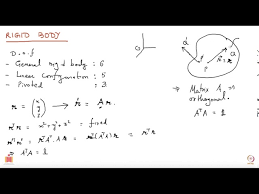 RIGID BODY
D.o.f
- General rigid body : 6
- Linear Configuration : 5
- Pivoted : 3
r = (x y z) → r' = A r.
r^T r = x² + y² + z² = fixed
r'^T r' = r^T A^T. A r = r^T (A^T A) r = r^T r
⇒ A^T A = 1
→ Matrix A is orthogonal
A^T A = 1